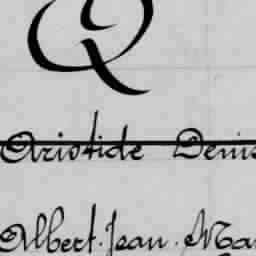 Q
Aristide Denis
Albert. Jean. Ma